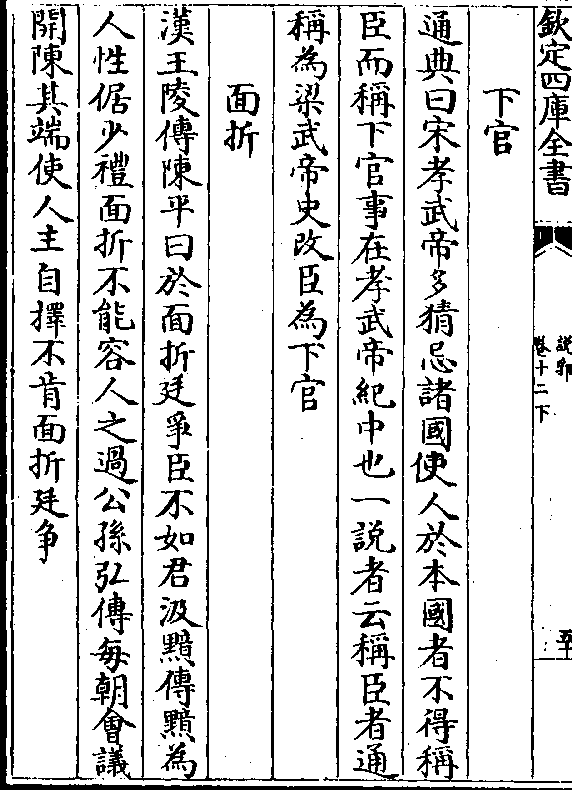 欽定四庫全書
說郛
卷十二下
下官
通典曰宋孝武帝多猜忌諸國使人於本國者不得稱
臣而稱下官事在孝武帝紀中也一說者云稱臣者通
稱為梁武帝史改臣為下官
面折
漢王陵傳陳平曰於面折廷爭臣不如君汲黯傳黯為
人性倨少禮面折不能容人之過公孫弘傳每朝會議
開陳其端使人主自擇不肯面折廷爭